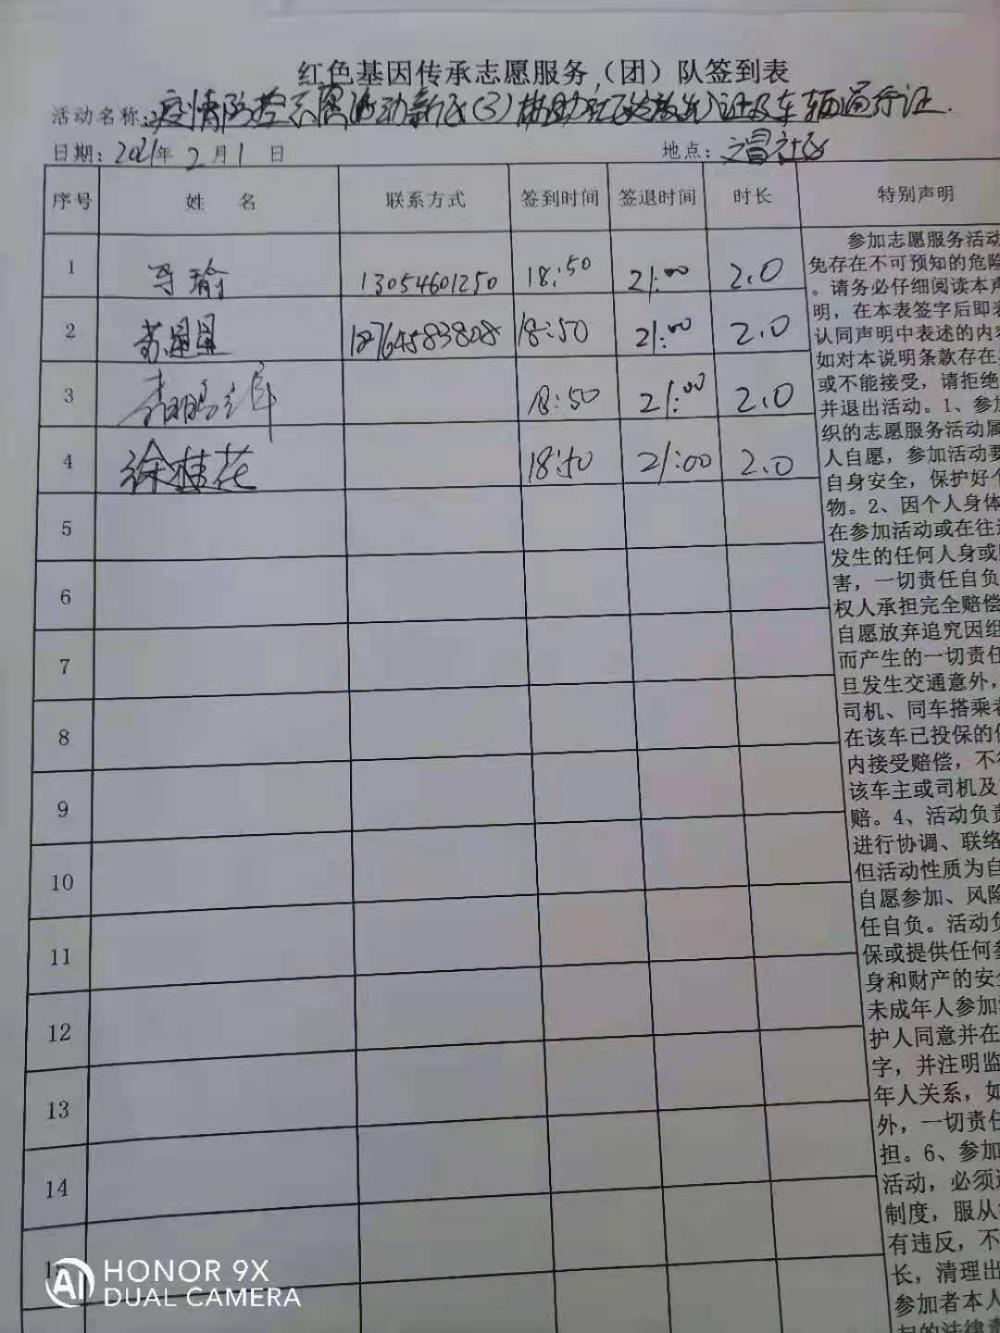 红色基因传承志愿服务（团）队签到表
活动名称：疫情防控志愿活动 (3)协助社区发放出入证及车辆通行证
日期：2021年 2 月 1 日 地点：文昌社区
序号 姓 名 联系方式 签到时间 签退时间 时长 特别声明
1 13054601250 18:50 21:00 2.0
2 18764583808 18:50 21:00 2.0
3 18:50 21:00 2.0
4 徐桂花 18:50 21:00 2.0
5
6
7
8
9
10
11
12
13
14
参加志愿服务活动
免存在不可预知的危险
。请务必仔细阅读本声
明，在本表签字后即表
认同声明中表述的内容
如对本说明条款存在
或不能接受，请拒绝
并退出活动。1、参加
织的志愿服务活动属
人自愿，参加活动要
自身安全，保护好个
物。2、因个人身体
在参加活动或在往返
发生的任何人身或
害，一切责任自负
权人承担完全赔偿
自愿放弃追究因组
而产生的一切责任
旦发生交通意外，
司机、同车搭乘者
在该车已投保的保
内接受赔偿，不得
该车主或司机及
赔。4、活动负责
进行协调、联络
但活动性质为自
自愿参加、风险
任自负。活动负
保或提供任何参
身和财产的安全
未成年人参加
护人同意并在
字，并注明监
年人关系，如
外，一切责任
担。6、参加
活动，必须遵
制度，服从
有违反，不
长，清理出
参加者本人
HONOR 9X
DUAL CAMERA